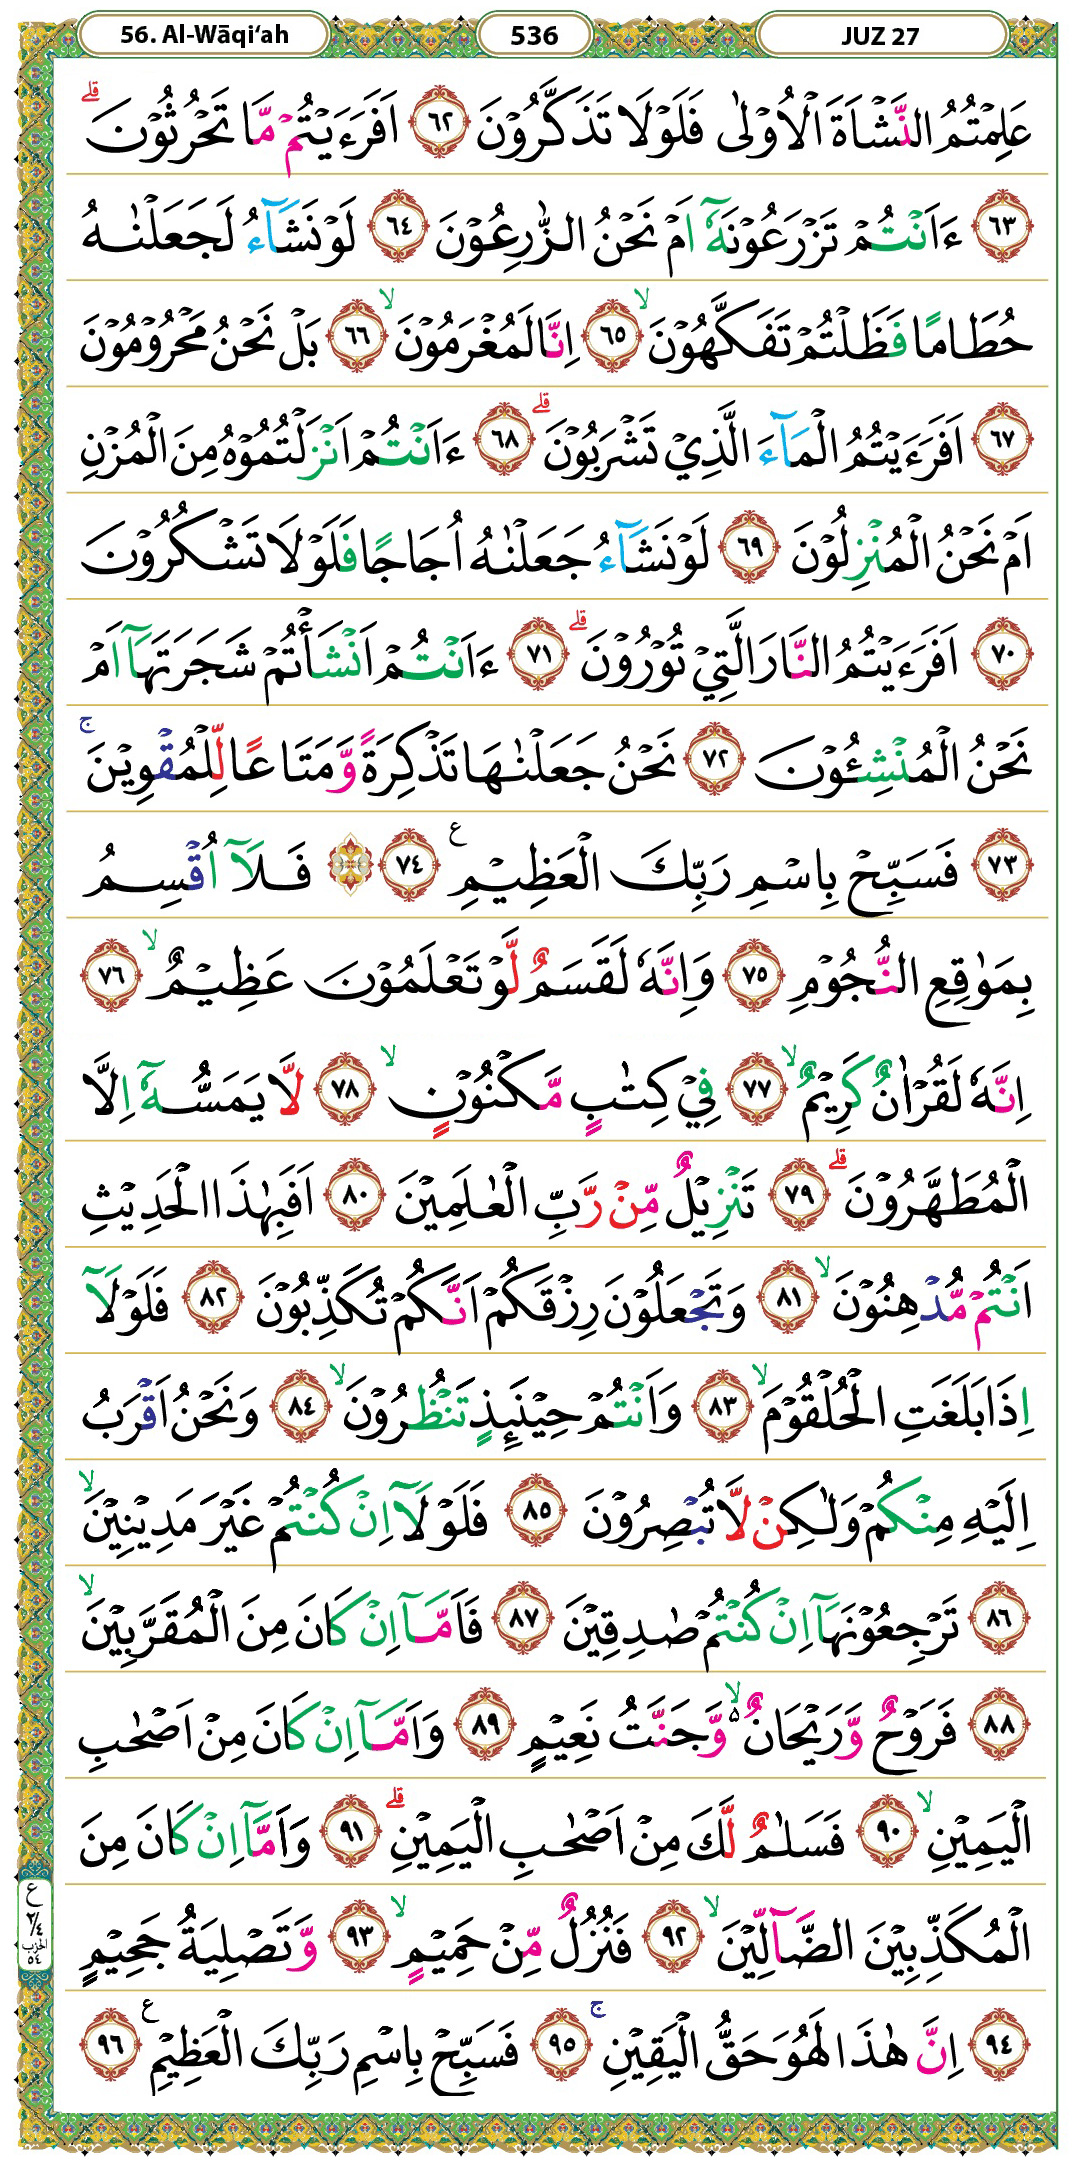 56. Al-Wāqi‘ah 536 JUZ 27
عَلِمْتُمُ النَّشْاَةَ الْاُوْلٰى فَلَوْلَا تَذَكَّرُوْنَ ٦٢ اَفَرَءَيْتُمْ مَّا تَحْرُثُوْنَ ۗ
٦٣ ءَاَنْتُمْ تَزْرَعُوْنَهٗٓ اَمْ نَحْنُ الزّٰرِعُوْنَ ٦٤ لَوْ نَشَاۤءُ لَجَعَلْنٰهُ
حُطَامًا فَظَلْتُمْ تَفَكَّهُوْنَۙ ٦٥ اِنَّا لَمُغْرَمُوْنَۙ ٦٦ بَلْ نَحْنُ مَحْرُوْمُوْنَ
٦٧ اَفَرَءَيْتُمُ الْمَاۤءَ الَّذِيْ تَشْرَبُوْنَۗ ٦٨ ءَاَنْتُمْ اَنْزَلْتُمُوْهُ مِنَ الْمُزْنِ
اَمْ نَحْنُ الْمُنْزِلُوْنَ ٦٩ لَوْ نَشَاۤءُ جَعَلْنٰهُ اُجَاجًا فَلَوْلَا تَشْكُرُوْنَ
٧٠ اَفَرَءَيْتُمُ النَّارَ الَّتِيْ تُوْرُوْنَۗ ٧١ ءَاَنْتُمْ اَنْشَأْتُمْ شَجَرَتَهَآ اَمْ
نَحْنُ الْمُنْشِـُٔوْنَ ٧٢ نَحْنُ جَعَلْنٰهَا تَذْكِرَةً وَّمَتَاعًا لِّلْمُقْوِيْنَۚ
٧٣ فَسَبِّحْ بِاسْمِ رَبِّكَ الْعَظِيْمِ ࣖ ٧٤ ۞ فَلَآ اُقْسِمُ
بِمَوٰقِعِ النُّجُوْمِ ٧٥ وَاِنَّهٗ لَقَسَمٌ لَّوْ تَعْلَمُوْنَ عَظِيْمٌۙ ٧٦
اِنَّهٗ لَقُرْاٰنٌ كَرِيْمٌۙ ٧٧ فِيْ كِتٰبٍ مَّكْنُوْنٍۙ ٧٨ لَّا يَمَسُّهٗٓ اِلَّا
الْمُطَهَّرُوْنَۗ ٧٩ تَنْزِيْلٌ مِّنْ رَّبِّ الْعٰلَمِيْنَ ٨٠ اَفَبِهٰذَا الْحَدِيْثِ
اَنْتُمْ مُّدْهِنُوْنَۙ ٨١ وَتَجْعَلُوْنَ رِزْقَكُمْ اَنَّكُمْ تُكَذِّبُوْنَ ٨٢ فَلَوْلَآ
اِذَا بَلَغَتِ الْحُلْقُوْمَۙ ٨٣ وَاَنْتُمْ حِيْنَىِٕذٍ تَنْظُرُوْنَۙ ٨٤ وَنَحْنُ اَقْرَبُ
اِلَيْهِ مِنْكُمْ وَلٰكِنْ لَّا تُبْصِرُوْنَ ٨٥ فَلَوْلَآ اِنْ كُنْتُمْ غَيْرَ مَدِيْنِيْنَۙ
٨٦ تَرْجِعُوْنَهَآ اِنْ كُنْتُمْ صٰدِقِيْنَ ٨٧ فَاَمَّآ اِنْ كَانَ مِنَ الْمُقَرَّبِيْنَۙ
٨٨ فَرَوْحٌ وَّرَيْحَانٌ ەۙ وَّجَنَّتُ نَعِيْمٍ ٨٩ وَاَمَّآ اِنْ كَانَ مِنْ اَصْحٰبِ
الْيَمِيْنِۙ ٩٠ فَسَلٰمٌ لَّكَ مِنْ اَصْحٰبِ الْيَمِيْنِۗ ٩١ وَاَمَّآ اِنْ كَانَ مِنَ
الْمُكَذِّبِيْنَ الضَّاۤلِّيْنَۙ ٩٢ فَنُزُلٌ مِّنْ حَمِيْمٍۙ ٩٣ وَّتَصْلِيَةُ جَحِيْمٍ
٩٤ اِنَّ هٰذَا لَهُوَ حَقُّ الْيَقِيْنِۚ ٩٥ فَسَبِّحْ بِاسْمِ رَبِّكَ الْعَظِيْمِ ࣖ ٩٦
ع
٢/٤
الحزب
٥٤